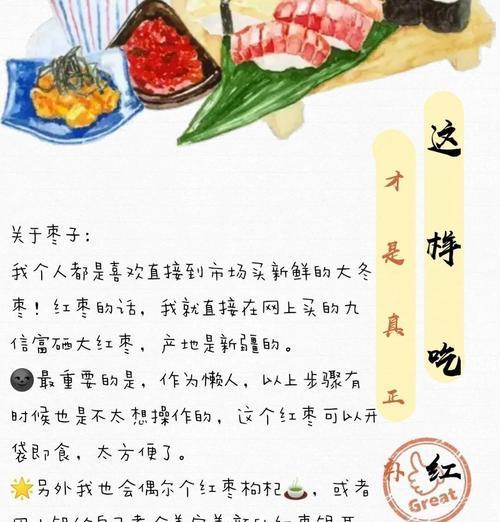 这样吃红
才是真正补
关于枣子:
我个人都是喜欢直接到市场买新鲜的大冬
枣!红枣的话,我就直接在网上买的九
信富硒大红枣,产地是新疆的。
🌚最重要的是,作为懒人,以上步骤有
时候也是不太想操作的,这个红枣可以开
袋即食,太方便了。
🌟另外我也会偶尔个红枣枸杞🍵,或者
Great